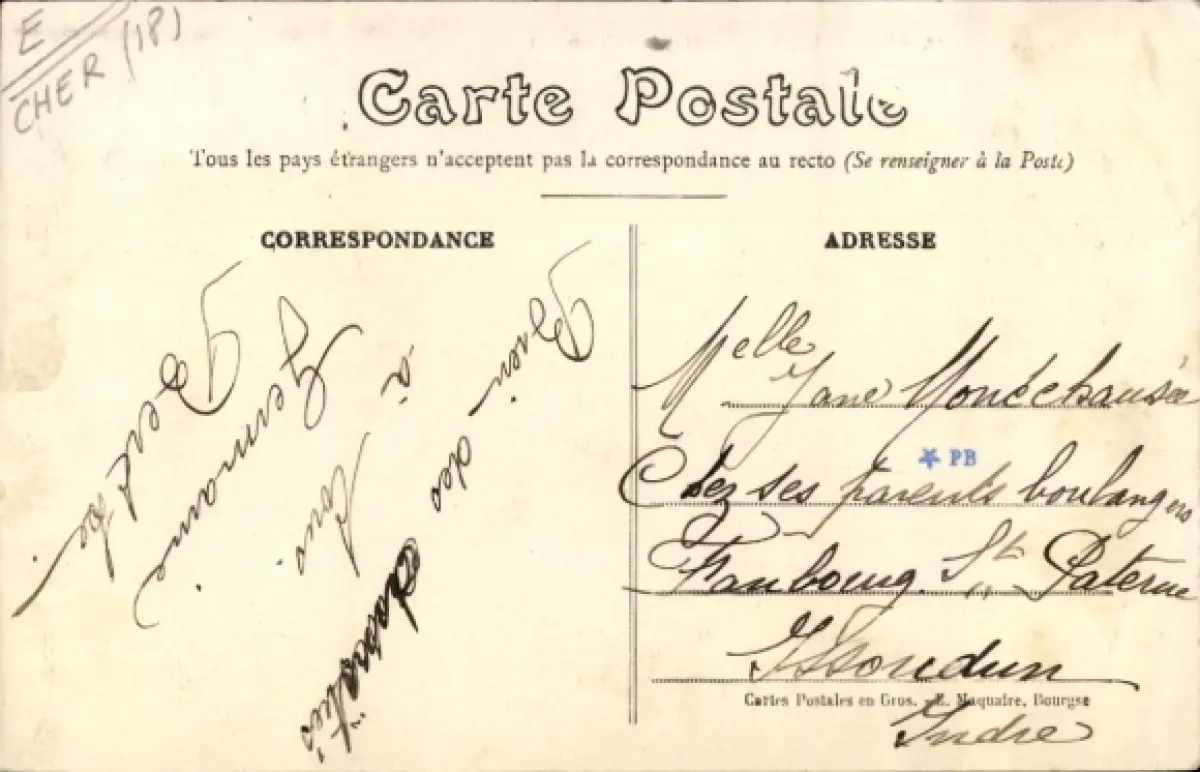 E
CHER (18)
Carte Postale
Tous les pays étrangers n'acceptent pas la correspondance au recto (Se renseigner à la Poste)
CORRESPONDANCE
à
tous
Germaine
ADRESSE
Melle
Jane Monéchausée
PB
Chez ses parents boulangers
Faubourg St Paterne
Issoudun
Cartes Postales en Gros. - E. Maquaire, Bourgse
Indre